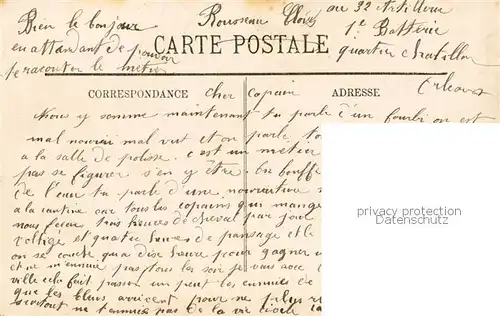 Bien le bonjour
en attendant de pouvoir
te raconter le métier
Rousseau
au 32 Artillerie
1e Batterie
quartier chatillon
Orleans
CARTE POSTALE
CORRESPONDANCE
ADRESSE
cher Copain
Nous y somme maintenant tu parle d'un fourbi on est
mal nourri mal vut et on parle
a la salle de polisse. c'est un metier
pas se figurer s'en y être. On bouffe
de l'eau tu parle d'une nourriture
a la cantine car tous les copains qui mange
nous trois heures de cheval par jour
voltige et quatre heures de pansage et le
on se couche qua dise heure pour gagner
et ne m'ennuie pas tous les soir je vais avec
ville cela fait passer un peut les ennuies de
que les bleus arrivent pour ne plus
surtout ne t'ennuies pas de la vie
privacy protection
Datenschutz